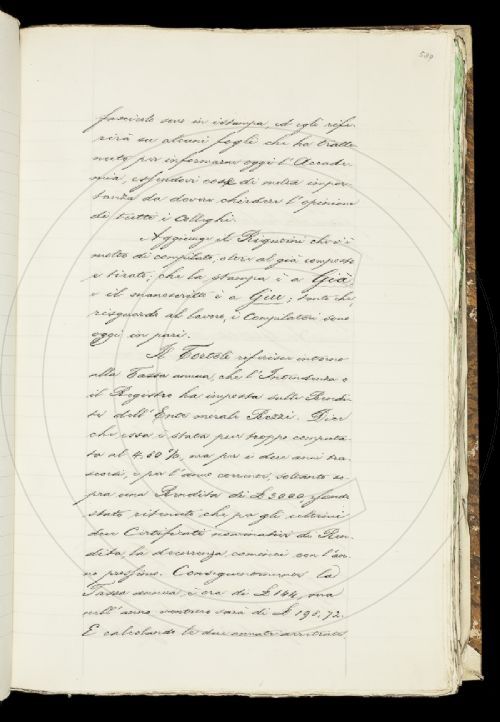 580
fascicolo sono in istampa, ed egli rife-
rirà su alcuni fogli che ha tratte-
nuto per informarne oggi l'Accade-
mia, essendovi cose di molta impor-
tanza da dovere chiedere l'opinione
di tutti i Colleghi.
Aggiunge il Rigutini che c'è
molto di compilato, oltre al già composto
e tirato; che la stampa è a Già,
e il manoscritto è a Giu; tanto che,
riguardo al lavoro, i Compilatori sono
oggi in pari.
Il Tortoli riferisce intorno
alla Tassa annua, che l'Intendenza e
il Registro ha imposta sulla Rendi-
ta dell'Ente morale Rezzi. Dice
che essa è stata pur troppo computa-
ta al 4.80 %, ma per i due anni tra-
scorsi, e per l'anno corrente, soltanto so-
pra una Rendita di £ 3000, essendo
stato ritenuto che per gli ultimi
due Certificati nominativi di Ren-
dita, la decorrenza cominci con l'an-
no prossimo. Conseguentemente la
Tassa annua è ora di £ 144, ma
nell'anno venturo sarà di £ 195.72.
E calcolando le due annate arretrate